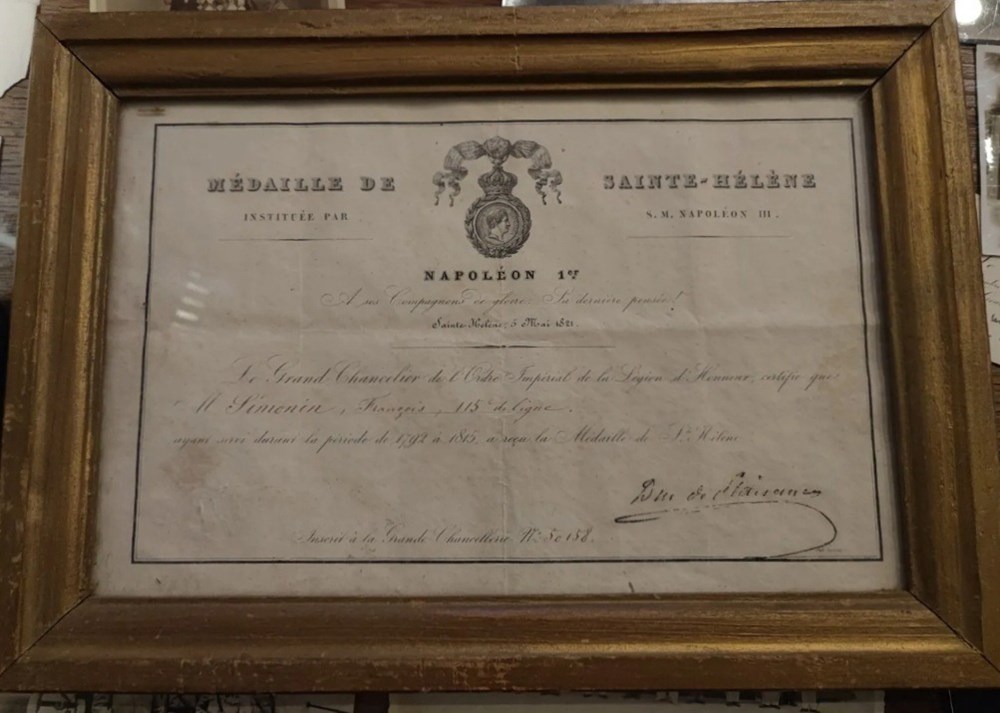 MÉDAILLE DE SAINTE-HÉLÈNE
INSTITUÉE PAR S. M. NAPOLÉON III.
NAPOLÉON 1er
A ses Compagnons de gloire, Sa dernière pensée!
Sainte-Hélène, 5 Mai 1821.
Le Grand Chancelier de l'Ordre Impérial de la Légion d'Honneur, certifie que
M Simonin, François, 115e de ligne.
ayant servi durant la période de 1792 à 1815, a reçu la Médaille de Ste Hélène
Duc de Plaisance
Inscrit à la Grande Chancellerie No 50158.